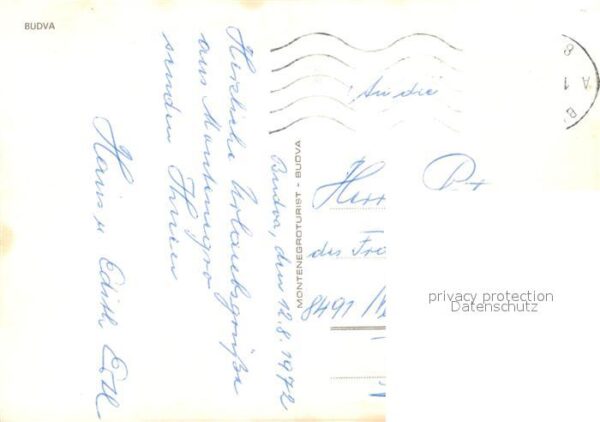 BUDVA
Budva, den 12.8.1972
Herzliche Urlaubsgrüße
aus Montenegro
senden Ihnen
Hans u. Edith Ertl
MONTENEGROTURIST - BUDVA
8
A 1
An die
Herr
der
8491
privacy protection
Datenschutz